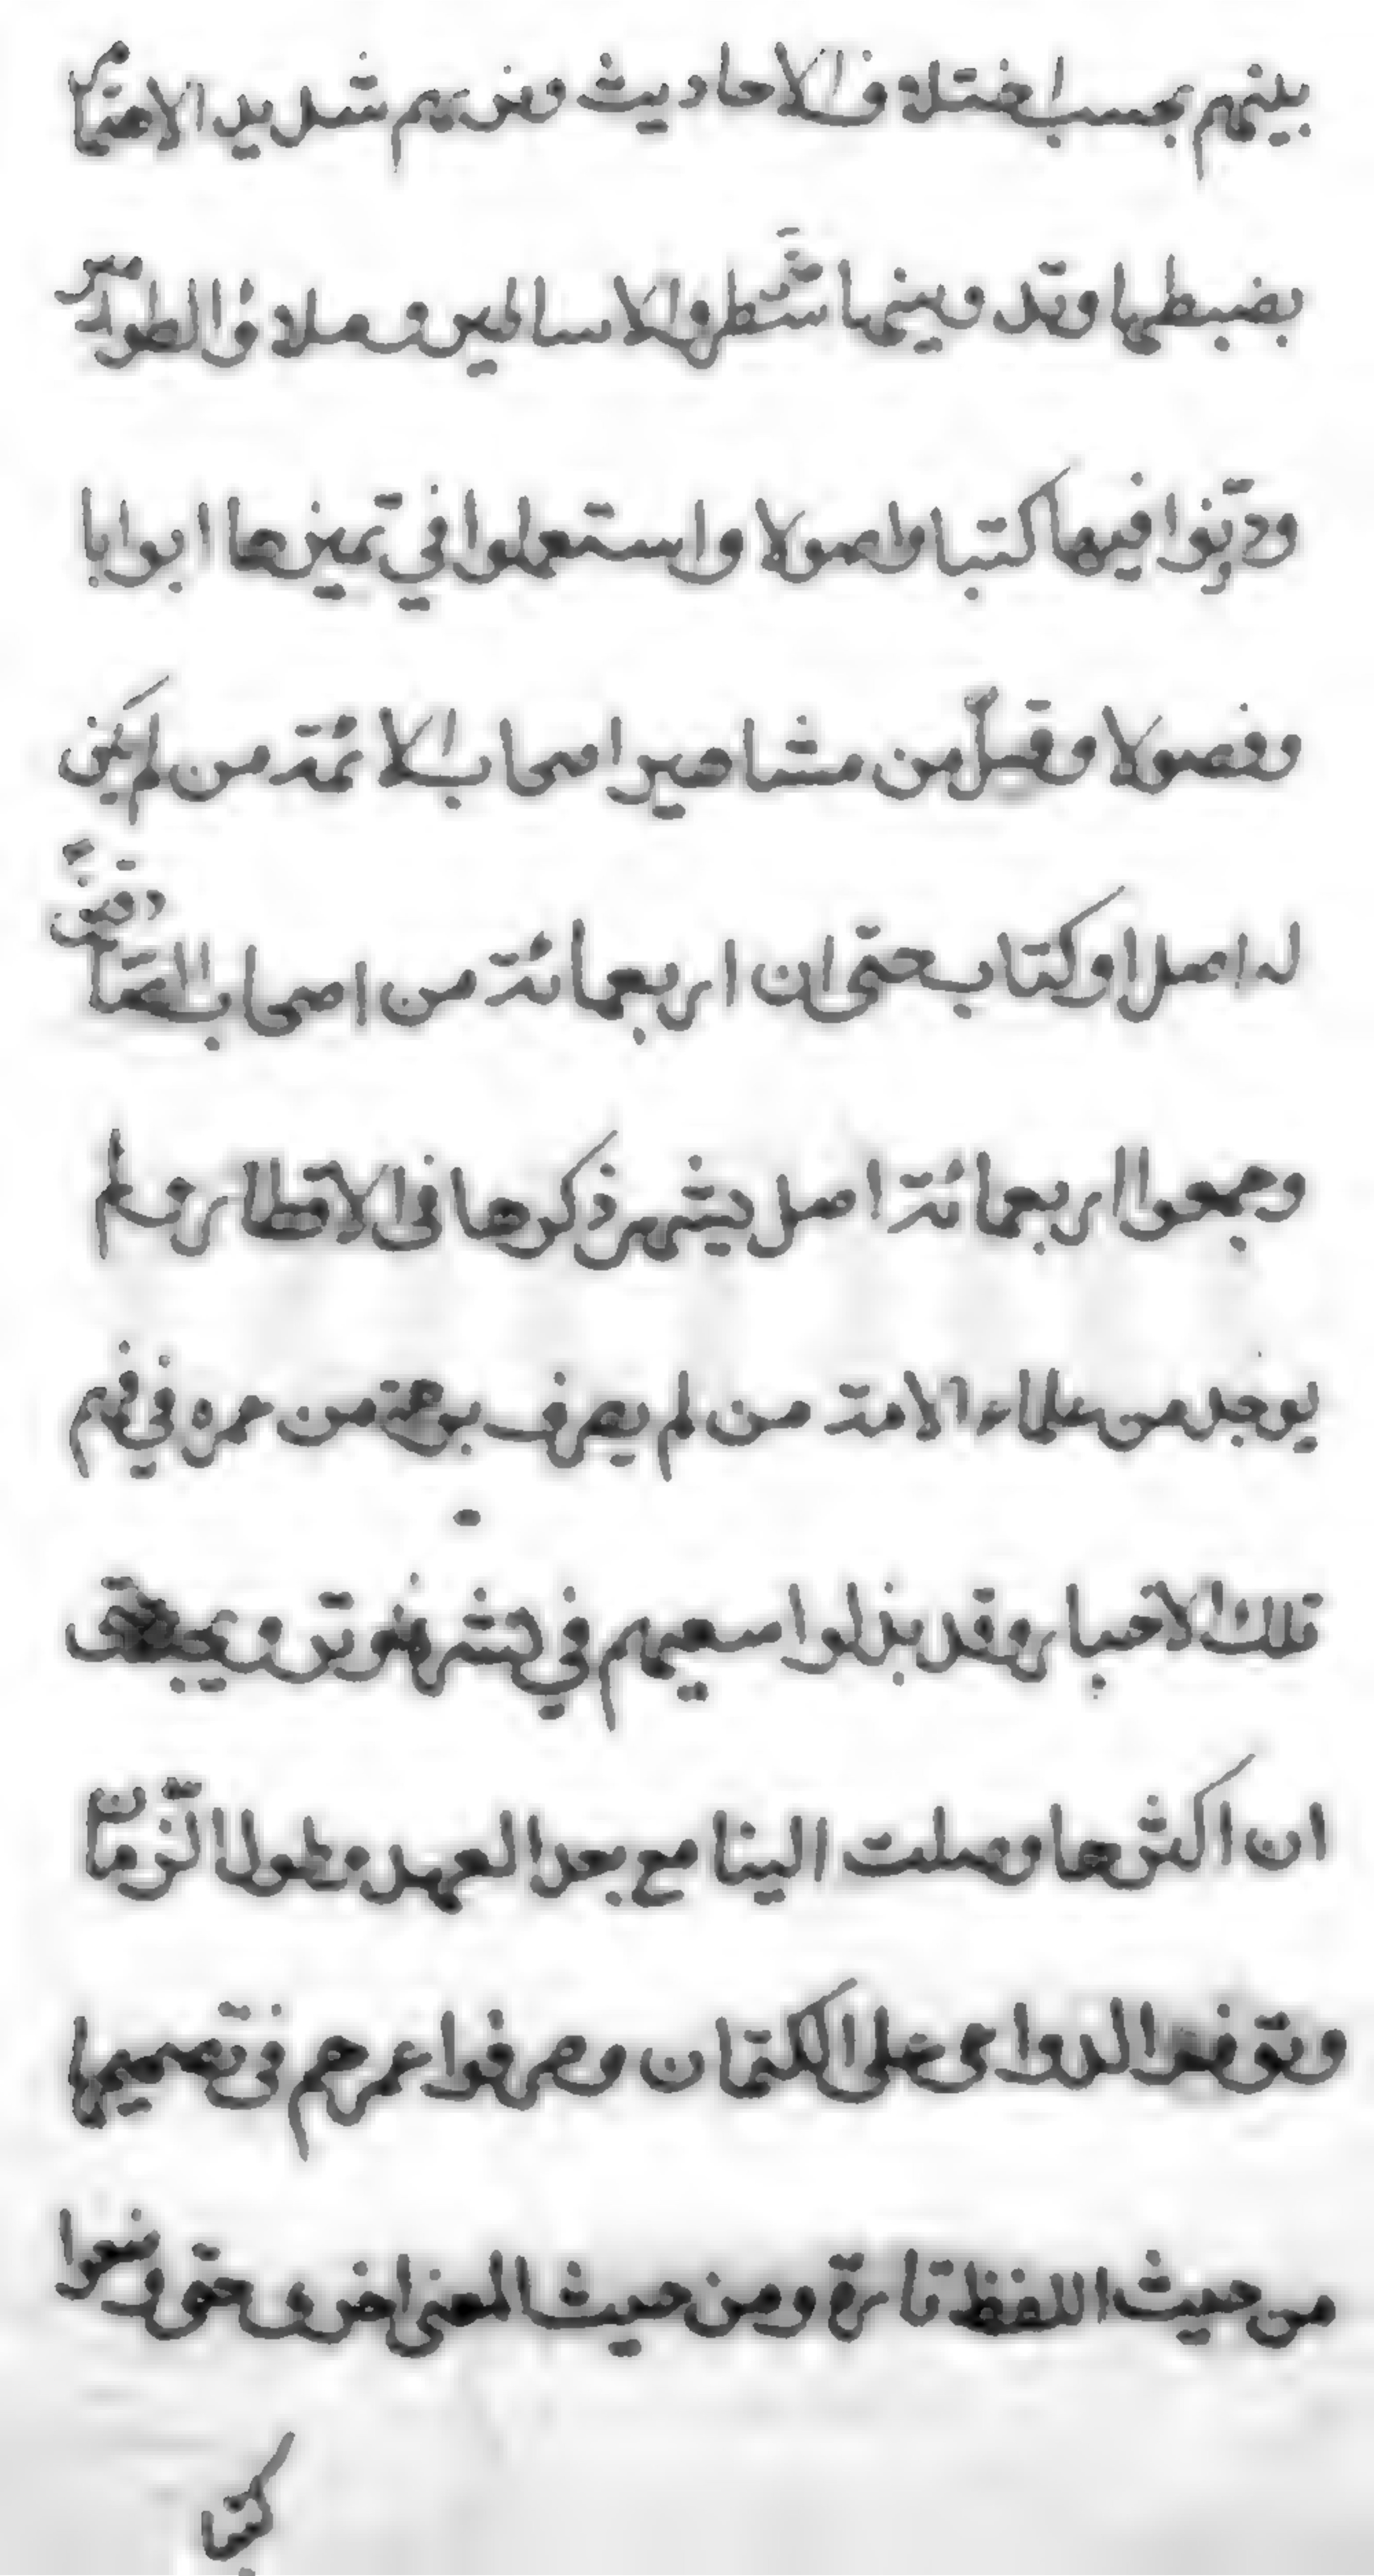 بينهم بحسب اختلاف الاحاديث ومن يهم شديد الاهتمام
بضبطها وتدوينها شطروا الاساليب وملاؤا الطوامير
ودوّنوا فيها كتبا واصولا واستعملوا في تميزها ابوابا
وفصولا وقيل من مشاهير اصحاب الائمة من لم يكن
له اصل او كتاب حتى ان اربعمائة من اصحاب الصادق
وجمعوا اربعمائة اصل يشهر ذكرها في الاقطار فلم
يوجد من علماء الامة من لم يصرف برهة من عمره في فهم
تلك الاخبار وقد بذلوا سعيهم في نشر
ان اكثرها وصلت الينا مع بعد العهد وطول الزمان
وتوفر الدواعى على الكتمان وصرفوا عمرهم في تصحيحها
من حيث اللفظ تارة ومن حيث المعنى اخرى حتى وضعوا
كتبا